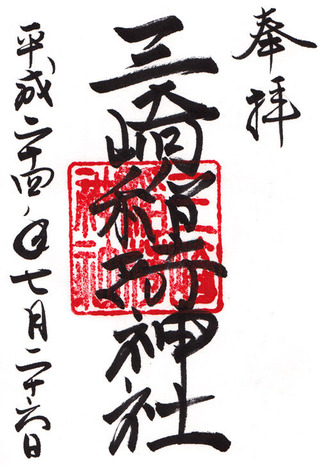 奉拝
三崎稲荷神社
平成二十四年七月二十六日